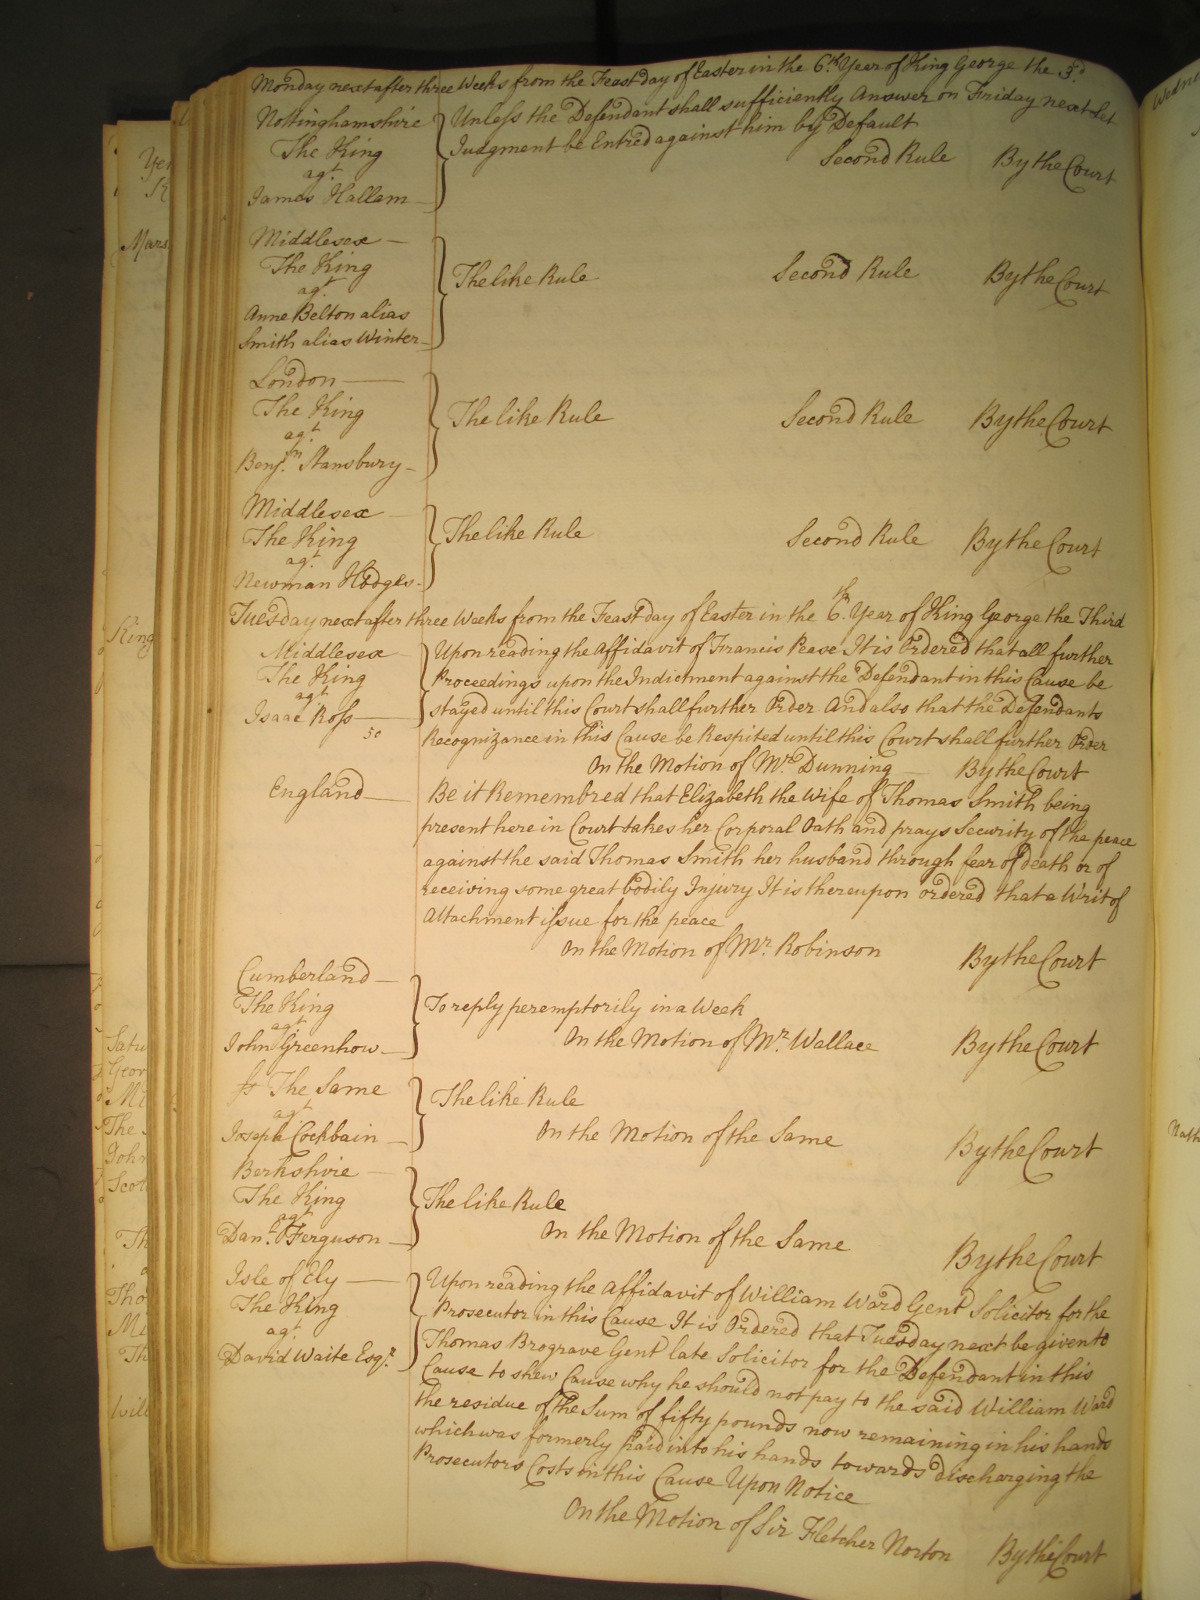 Monday next after three Weeks from the Feast day of Easter in the 6.th Year of King George the 3.d
Nottinghamshire
The King
agt.
James Hallam
Unless the Defendant shall sufficiently Answer on Friday next Let
Judgment be Entred against him by Default
Second Rule By the Court
Middlesex
The King
agt.
Anne Belton alias
Smith alias Winter
The like Rule Second Rule By the Court
London
The King
agt.
Benj.n Stansbury
The like Rule Second Rule By the Court
Middlesex
The King
agt.
Newman Hodges
The like Rule Second Rule By the Court
Tuesday next after three Weeks from the Feast day of Easter in the 6.th Year of King George the Third
Middlesex
The King
agt.
Isaac Ross
50
Upon reading the Affidavit of Francis Pease It is Ordered that all further
Proceedings upon the Indictment against the Defendant in this Cause be
stayed until this Court shall further Order And also that the Defendants
Recognizance in this Cause be Respited until this Court shall further Order
On the Motion of Mr. Dunning By the Court
England
Be it Remembred that Elizabeth the Wife of Thomas Smith being
present here in Court takes her Corporal Oath and prays Security of the peace
against the said Thomas Smith her husband through fear of death or of
receiving some great bodily Injury It is thereupon ordered that a Writ of
Attachment issue for the peace
On the Motion of Mr. Robinson By the Court
Cumberland
The King
agt.
John Greenhow
To reply peremptorily in a Week
On the Motion of Mr. Wallace By the Court
ss The Same
agt
Joseph Cockbain
The like Rule
On the Motion of the Same By the Court
Berkshire
The King
agt
Dan.l Ferguson
The like Rule
On the Motion of the Same By the Court
Isle of Ely
The King
agt.
David Waite Esq.r
Upon reading the Affidavit of William Ward Gent Solicitor for the
Prosecutor in this Cause It is Ordered that Tuesday next be given to
Thomas Brograve Gent late Solicitor for the Defendant in this
Cause to shew Cause why he should not pay to the said William Ward
the residue of the Sum of fifty pounds now remaining in his hands
which was formerly paid into his hands towards discharging the
Prosecutors Costs in this Cause Upon Notice
On the Motion of Sir Fletcher Norton By the Court